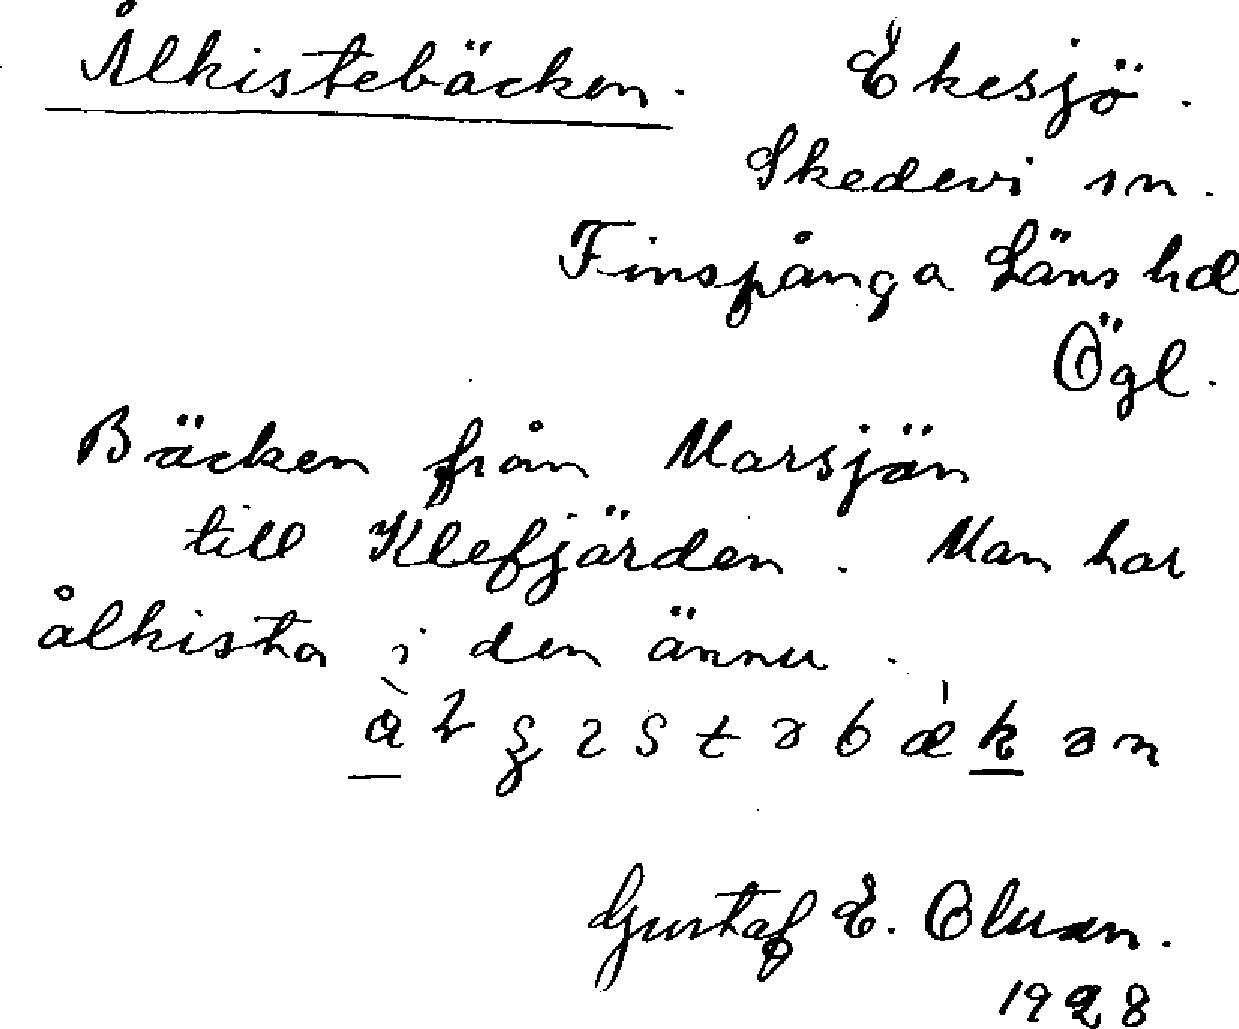 Ålkistebäcken. Ekesjö.
Skedevi sn.
Finspånga Läns hd
Ögl.
Bäcken från Marsjön
till Klefjärden. Man har
ålkista i den ännu.
Gustaf E.
1928